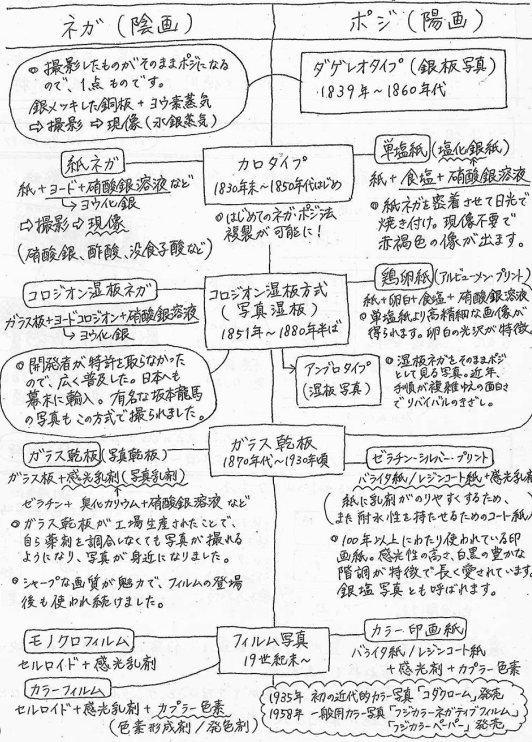 ネガ（陰画）
ポジ（陽画）
◎ 撮影したものがそのままポジになる
ので、1点ものです。
銀メッキした銅板＋ヨウ素蒸気
⇨撮影⇨現像（水銀蒸気）
ダゲレオタイプ（銀板写真）
1839年～1860年代
紙ネガ
紙＋ヨード＋硝酸銀溶液など
↳ヨウ化銀
⇨撮影⇨現像
（硝酸銀、酢酸、没食子酸など）
カロタイプ
1830年末～1850年代はじめ
◎はじめてのネガ・ポジ法
複製が可能に！
単塩紙（塩化銀紙）
紙＋食塩＋硝酸銀溶液
◎ 紙ネガを密着させて日光で
焼き付け。現像不要で
赤褐色の像が出ます。
コロジオン湿板ネガ
ガラス板＋ヨードコロジオン＋硝酸銀溶液
↳ヨウ化銀
◎ 開発者が特許を取らなかった
ので、広く普及した。日本へも
幕末に輸入。有名な坂本龍馬
の写真もこの方式で撮られました。
コロジオン湿板方式
（写真湿板）
1851年～1880年半ば
鶏卵紙（アルビューメン・プリント）
紙＋卵白＋食塩＋硝酸銀溶液
◎単塩紙より高精細な画像が
得られます。卵白の光沢が特徴。
アンブロタイプ
（湿板写真）
◎湿板ネガをそのままポジ
として見る写真。近年、
手順が複雑ゆえの面白さ
でリバイバルのきざし。
ガラス乾板（写真乾板）
ガラス板＋感光乳剤（写真乳剤）
ゼラチン＋臭化カリウム＋硝酸銀溶液など
◎ガラス乾板が工場生産されたことで、
自ら薬剤を調合しなくても写真が撮れる
ようになり、写真が身近になりました。
◎シャープな画質が魅力で、フィルムの登場
後も使われ続けました。
ガラス乾板
1870年代～1930年頃
ゼラチン・シルバー・プリント
バライタ紙/レジンコート紙＋感光乳剤
（紙に乳剤がのりやすくするため、
また耐水性を持たせるためのコート紙）
◎100年以上にわたり使われている印
画紙。感光性の高さ、白黒の豊かな
階調が特徴で長く愛されています。
銀塩写真とも呼ばれます。
モノクロフィルム
セルロイド＋感光乳剤
カラーフィルム
セルロイド＋感光乳剤＋カプラー色素
（色素形成剤/発色剤）
フィルム写真
19世紀末～
カラー印画紙
バライタ紙/レジンコート紙
＋感光乳剤＋カプラー色素
1935年 初の近代的カラー写真「コダクローム」発売
1958年 一般用カラー写真「フジカラーネガティブフィルム」
「フジカラーペーパー」発売